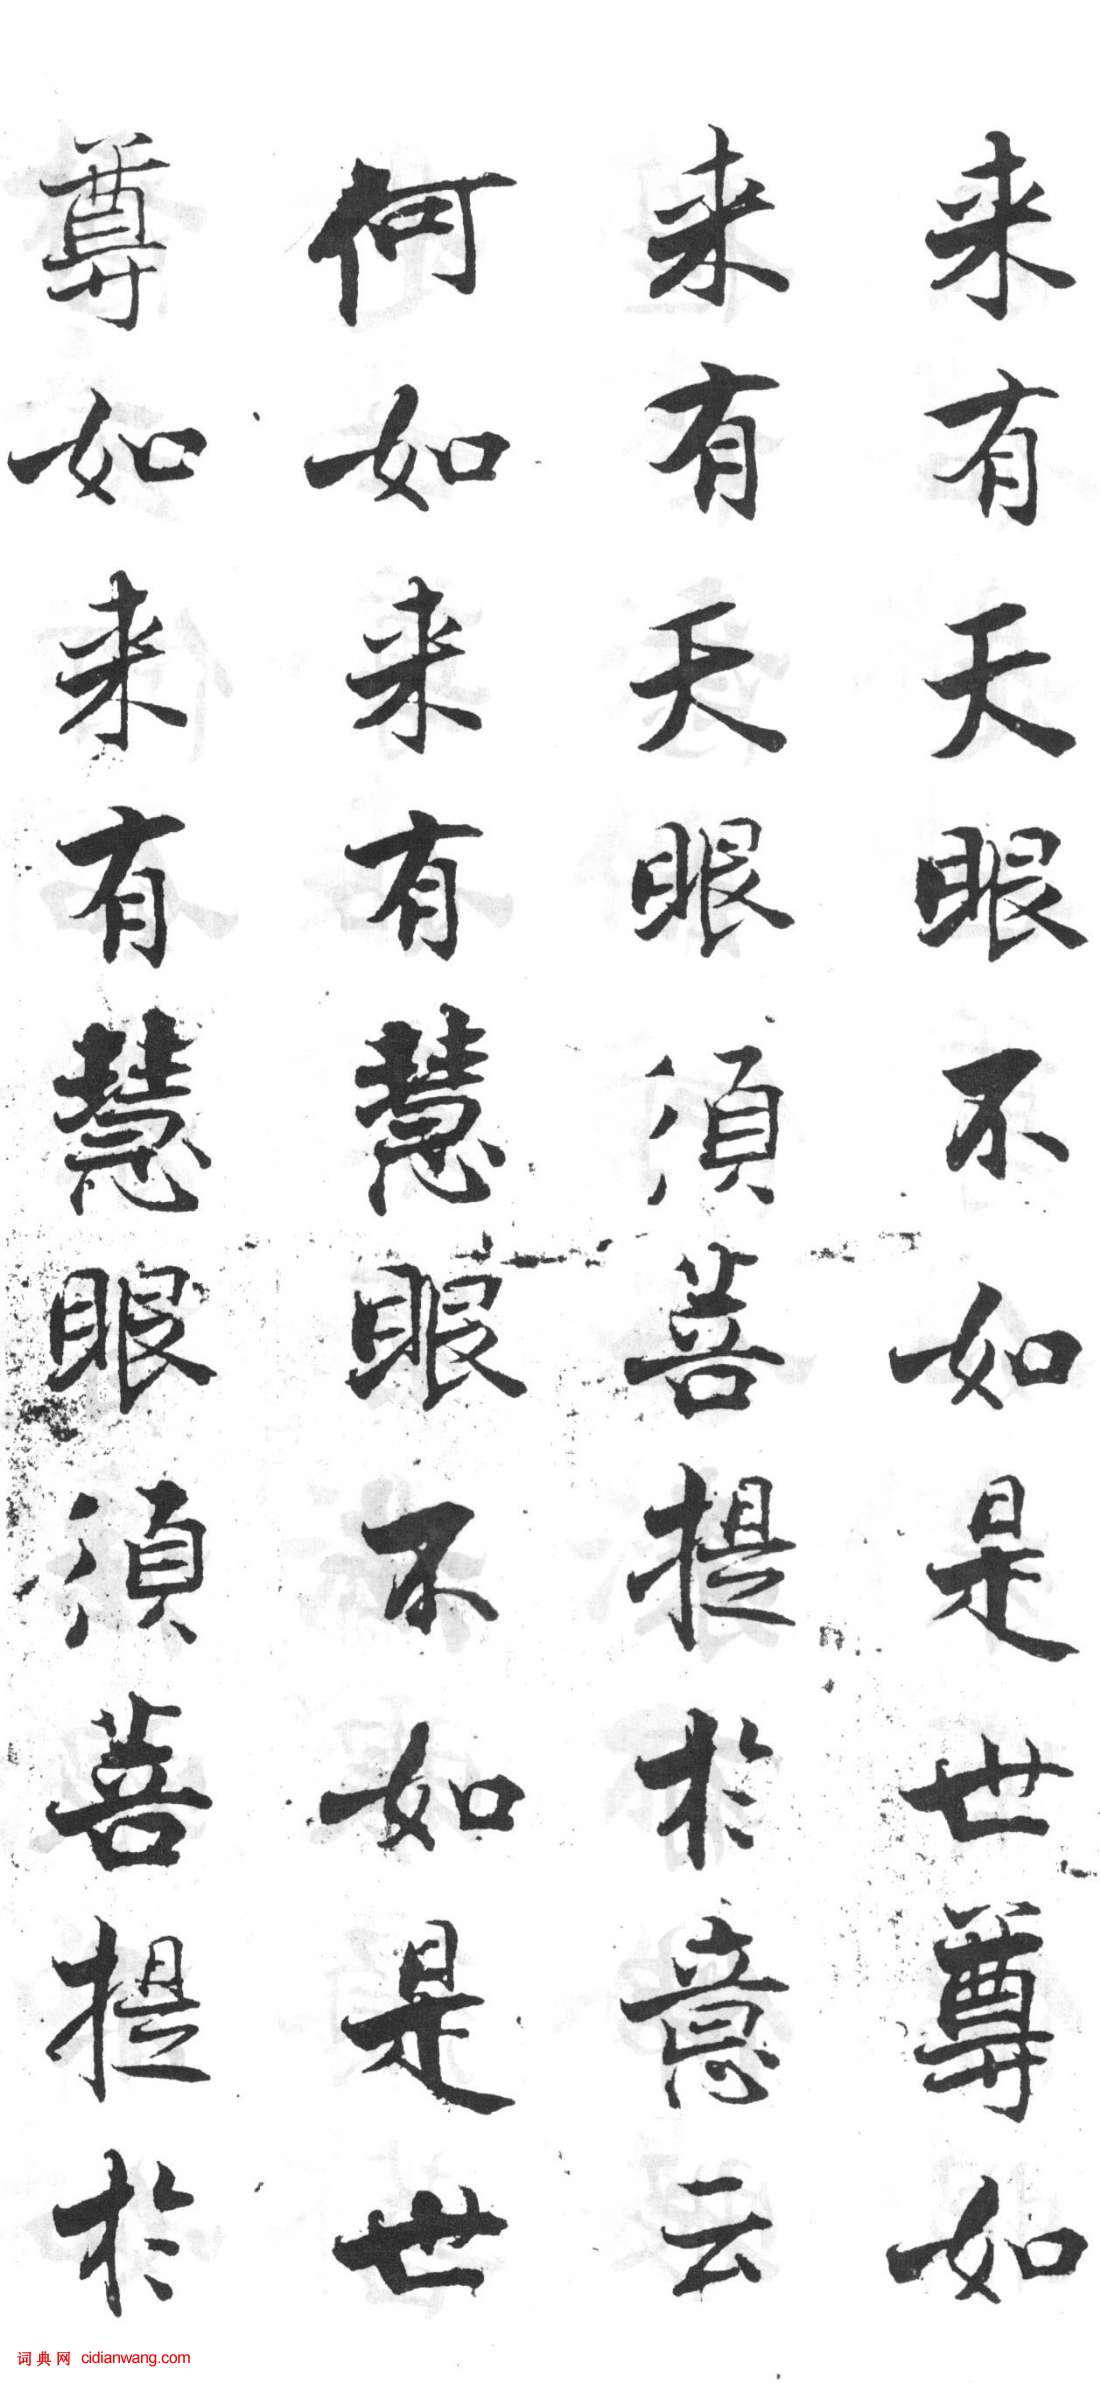 来有天眼不如是世尊如
来有天眼須菩提於意云
何如来有慧眼不如是世
尊如来有慧眼須菩提於
词典网 cidianwang.com